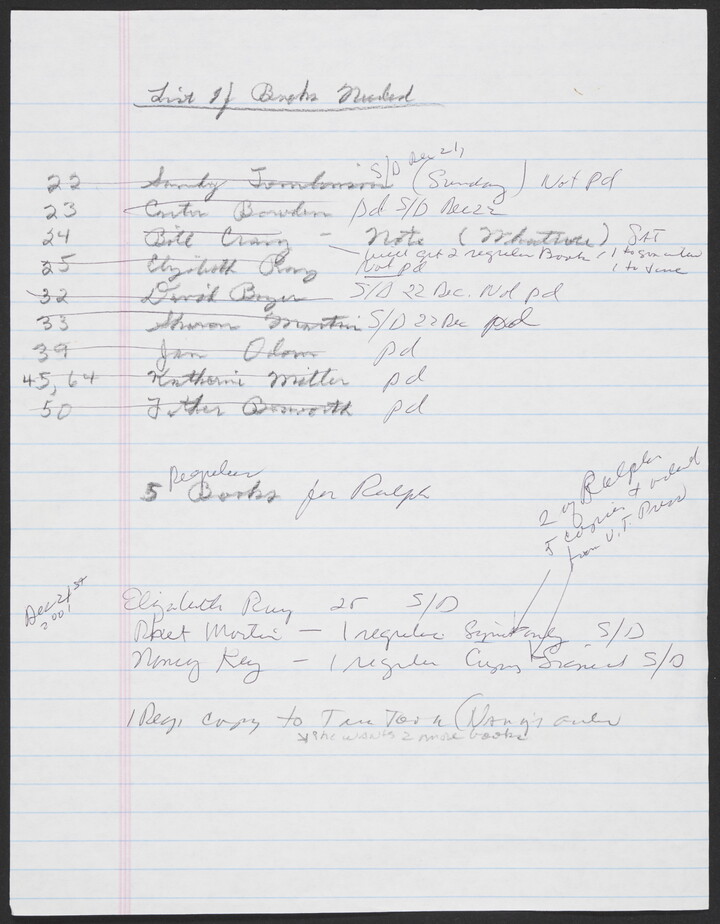 List of Books Needed
22 Sandy Tomlinson S/D Dec 21, (Sunday) Not pd
23 Carter Bowden pd S/D Dec 22
24 Bill Craig - Note (Whatever) SAT
25 Elizabeth Roy Not pd get 2 regular Books, 1 to 1 to June
32 David Boyer S/D 22 Dec. Not pd
33 Sharon Martin S/D 22 Dec pd
39 Jan Odom pd
45, 64 Katherine Miller pd
50 Father Bosworth pd
5 Regular Books for Ralph
2 of Ralph
5 copies
from U.T. Press
Dec 21st 2001
Elizabeth Roy 25 S/D
Martin - 1 regular Signature only S/D
Nancy Key - 1 regular Copy Signed S/D
1 Reg. copy to (Nancy's
she wants 2 more books